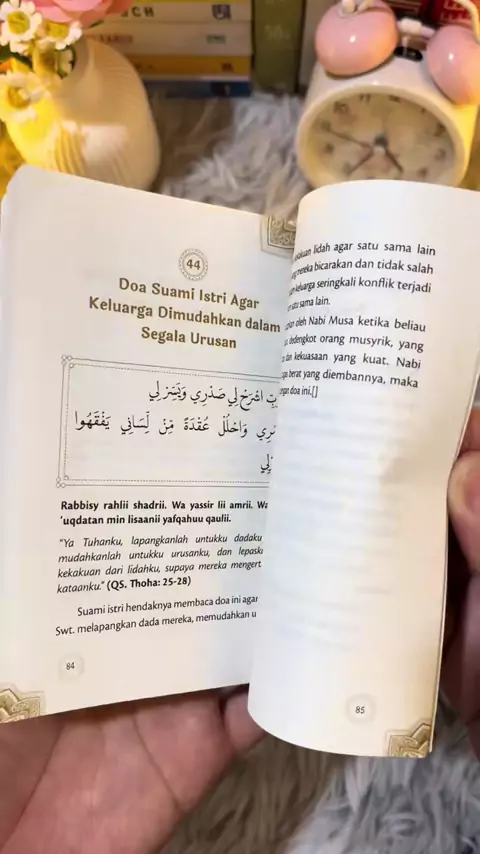 44
Doa Suami Istri Agar
Keluarga Dimudahkan dalam
Segala Urusan
اشْرَحْ لِي صَدْرِي وَيَسِّرْ لِي
وَاحْلُلْ عُقْدَةً مِّنْ لِّسَانِي يَفْقَهُوا
Rabbisy rahlii shadrii. Wa yassir lii amrii. Wa
'uqdatan min lisaanii yafqahuu qaulii.
"Ya Tuhanku, lapangkanlah untukku dadaku
mudahkanlah untukku urusanku, dan lepaska
kekakuan dari lidahku, supaya mereka mengert
kataanku." (QS. Thoha: 25-28)
Suami istri hendaknya membaca doa ini agar
Swt. melapangkan dada mereka, memudahkan u
84
lidah agar satu sama lain
mereka bicarakan dan tidak salah
keluarga seringkali konflik terjadi
satu sama lain.
oleh Nabi Musa ketika beliau
dedengkot orang musyrik, yang
dan kekuasaan yang kuat. Nabi
berat yang diembannya, maka
doa ini.[]
85